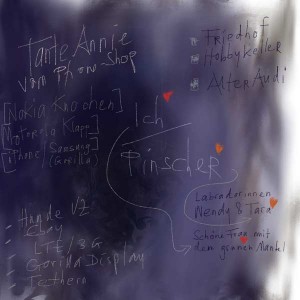 Tante Annie
vom Phone-Shop
[Nokia Knochen]
[Motorola Klapp]
[iPhone/Samsung]
(Gorilla)
Hunde VZ:
- Clay
- LTE/3G
- Gorilla Display
- Tethern
Friedhof
Hobbykeller
Alter Audi
Ich
Pinscher
Labradorinnen
Wendy & Tara
Schöne Frau mit
dem grünen Mantel